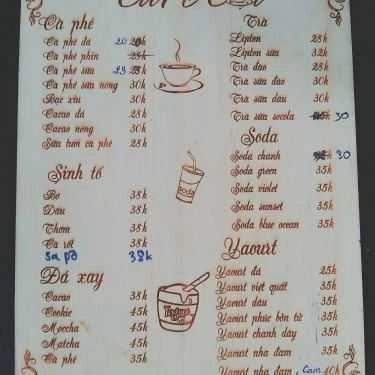 Cà phê
Cà phê đá 20
Cà phê phin 28k
Cà phê sữa 23
Cà phê sữa nóng 30k
Bạc xỉu 30k
Cacao đá 28k
Cacao nóng 30k
Sữa tươi cà phê 28k
Sinh tố
Bơ 38k
Dâu 38k
Thơm 38k
Cà rốt 38k
Sa pô 38k
Đá xay
Cacao 38k
Cookie 45k
Mocha 45k
Matcha 45k
Cà phê 35k
Trà
Lipton 28k
Lipton sữa 32k
Trà đào 28k
Trà sữa đào 30k
Trà sữa dâu 30k
Trà sữa socola 30
Soda
Soda chanh 30
Soda green 35k
Soda violet 35k
Soda sunset 35k
Soda blue ocean 35k
soda
Yaourt
Yaourt đá 25k
Yaourt việt quất 35k
Yaourt dâu 35k
Yaourt phúc bồn tử 35k
Yaourt chanh dây 35k
Yaourt nha đam 35k
Yaourt nha đam, Cam 40k